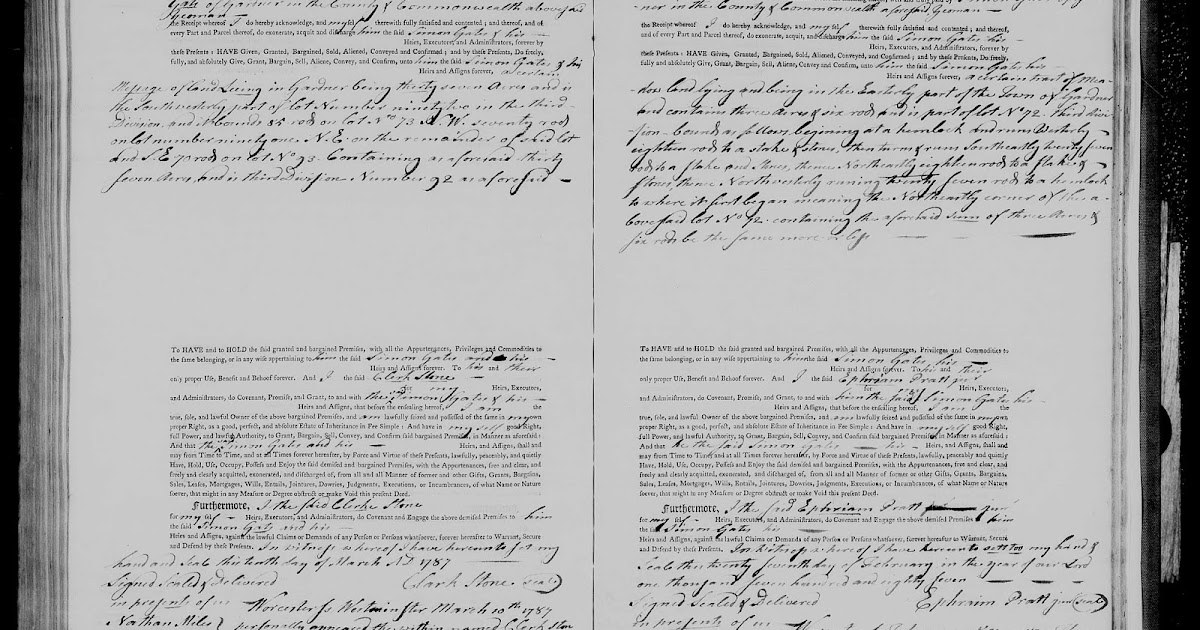 Gats of Gardner in the County & Commonwealth abovesaid
Yeoman —
the Receipt whereof I do hereby acknowledge, and my self therewith fully satisfied and contented ; and thereof, and of
every Part and Parcel thereof, do exonerate, acquit and discharge him the said Simon Gates & his —
Heirs, Executors, and Administrators, forever by
these Presents : HAVE Given, Granted, Bargained, Sold, Aliened, Conveyed and Confirmed ; and by these Presents, Do freely,
fully, and absolutely Give, Grant, Bargain, Sell, Aliene, Convey and Confirm, unto him the said Simon Gates & his
Heirs and Assigns forever, a certain
Messuge of land Lieing in Gardner being thirty seven Acres and is
the Southwesterly part of lot Number ninety two in the third
Division, and it bounds 85 rod on lot No 73 N. W. seventy rod
on lot number ninety one N. E. on the remainder of said lot
and S. E. 70 rod on lot No 93 Containing as aforesaid thirty
seven Acres, and is third Division Number 92 as aforesaid —
To HAVE and to HOLD the said granted and bargained Premises, with all the Appurtenances, Privileges and Commodities to
the same belonging, or in any wise appertaining to him the said Simon Gates and his —
Heirs and Assigns forever. To his and their
only proper Use, Benefit and Behoof forever. And I the said Clerk Stone —
for my Heirs, Executors,
and Administrators, do Covenant, Promise, and Grant, to and with the said Simon Gates & his —
Heirs and Assigns, that before the ensealing hereof, I am the
true, sole, and lawful Owner of the above bargained Premises, and am lawfully seized and possessed of the same in my own
proper Right, as a good, perfect, and absolute Estate of Inheritance in Fee Simple : And have in my self good Right,
full Power, and lawful Authority, to Grant, Bargain, Sell, Convey, and Confirm said bargained Premises, in Manner as aforesaid :
And that the Simon Gates and his — Heirs and Assigns, shall and
may from Time to Time, and at all Times forever hereafter, by Force and Virtue of these Presents, lawfully, peaceably, and quietly
Have, Hold, Use, Occupy, Possess and Enjoy the said demised and bargained Premises, with the Appurtenances, free and clear, and
freely and clearly acquitted, exonerated, and discharged of, from all and all Manner of former and other Gifts, Grants, Bargains,
Sales, Leases, Mortgages, Wills, Entails, Jointures, Dowries, Judgments, Executions, or Incumbrances, of what Name or Nature
soever, that might in any Measure or Degree obstruct or make Void this present Deed.
Furthermore, I the said Clerke Stone
for my self Heirs, Executors, and Administrators, do Covenant and Engage the above demised Premises to him
the said Simon Gats and his —
Heirs and Assigns, against the lawful Claims or Demands of any Person or Persons whatsoever, forever hereafter to Warrant, Secure
and Defend by these Presents. In witness whereof I have hereunto set my
hand and Seale this tenth day of March AD 1787
Signed Sealed & Delivered Clark Stone seal
in presents of us Worcester Ss Westminster March 10th 1787
Nathan Miles personally appeared the within named Clerk Stone
ner in the County & Commonwealth aforesaid Yeoman —
the Receipt whereof I do hereby acknowledge, and my self therewith fully satisfied and contented ; and thereof, and
of every Part and Parcel thereof, do exonerate, acquit, and discharge him the said Simon Gates his —
Heirs, Executors, and Administrators, forever by
these Presents : HAVE Given, Granted, Bargained, Sold, Aliened, Conveyed and Confirmed ; and by these Presents, Do freely,
fully and absolutely, Give, Grant, Bargain, Sell, Aliene, Convey and Confirm, unto him the said Simon Gates his
Heirs and Assigns forever, a certain tract of Mea-
dow land lying and being in the Easterly part of the Town of Gardner
and contains three Acres & six rod and is part of lot No 72 third divi-
sion — bounds as follows, begining at a hemlock and runs Westerly
eighteen rod to a stake & stones, then turn & run Southeastly twenty seven
rod to a stake and stones, thence Northeastly eighteen rod to a stake &
stones, thence Northwesterly runing twenty seven rod to a hemlock
to where it first began meaning the Northeastly corner of the a-
bovesaid lot No 72 containing the aforesaid sum of three Acres &
six rods be the same more or less — — —
To HAVE and to HOLD the said granted and bargained Premises, with all the Appurtenances, Privileges and Commodities to
the same belonging, or in any wise appertaining to him the said Simon Gates, his —
Heirs and Assigns forever. To his and their
only proper Use, Benefit and Behoof forever. And I the said Ephriam Pratt jur
for my Heirs, Executors,
and Administrators, do Covenant, Promise, and Grant, to and with him the said Simon Gates his —
Heirs and Assigns, that before the ensealing hereof, I am the
true, sole, and lawful Owner of the above bargained Premises, and am lawfully seized and possessed of the same in my own
proper Right, as a good, perfect, and absolute Estate of Inheritance in Fee Simple : And have in my self good Right,
full Power, and lawful Authority, to Grant, Bargain, Sell, Convey, and Confirm said bargained Premises in Manner as aforesaid :
And that he the said Simon Gates — his — Heirs and Assigns, shall and
may from Time to Time, and at all Times forever hereafter, by Force and Virtue of these Presents, lawfully, peaceably and quietly
Have, Hold, Use, Occupy, Possess and Enjoy the said demised and bargained Premises, with the Appurtenances, free and clear, and
freely and clearly acquitted, exonerated, and discharged of, from all and all Manner of former or other Gifts, Grants, Bargains,
Sales, Leases, Mortgages, Wills, Entails, Jointures, Dowries, Judgments, Executions, or Incumbrances, of what Name or Nature
soever, that might in any Measure or Degree obstruct or make Void this present Deed.
Furthermore, I the said Ephriam Pratt jur
for my self Heirs, Executors, and Administrators, do Covenant and Engage the above demised Premises to him
the said Simon Gates his —
Heirs and Assigns, against the lawful Claims or Demands of any Person or Persons whatsoever, forever hereafter to Warrant, Secure
and Defend by these Presents. In Witness whereof I have hereunto sett too my hand &
Seale this twenty seventh day of February in the year of our Lord
one thousand seven hundred and eighty seven — —
Signed Sealed & Delivered Ephraim Pratt jun (seale)
in presents of us